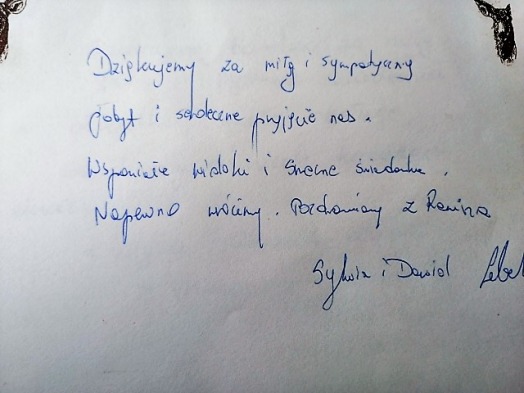 Dziękujemy za miły i sympatyczny
pobyt i serdeczne przyjęcie nas.
Wspaniałe widoki i smaczne śniadanka.
Napewno wrócimy. Pozdrawiamy z
Sylwia i Dawid